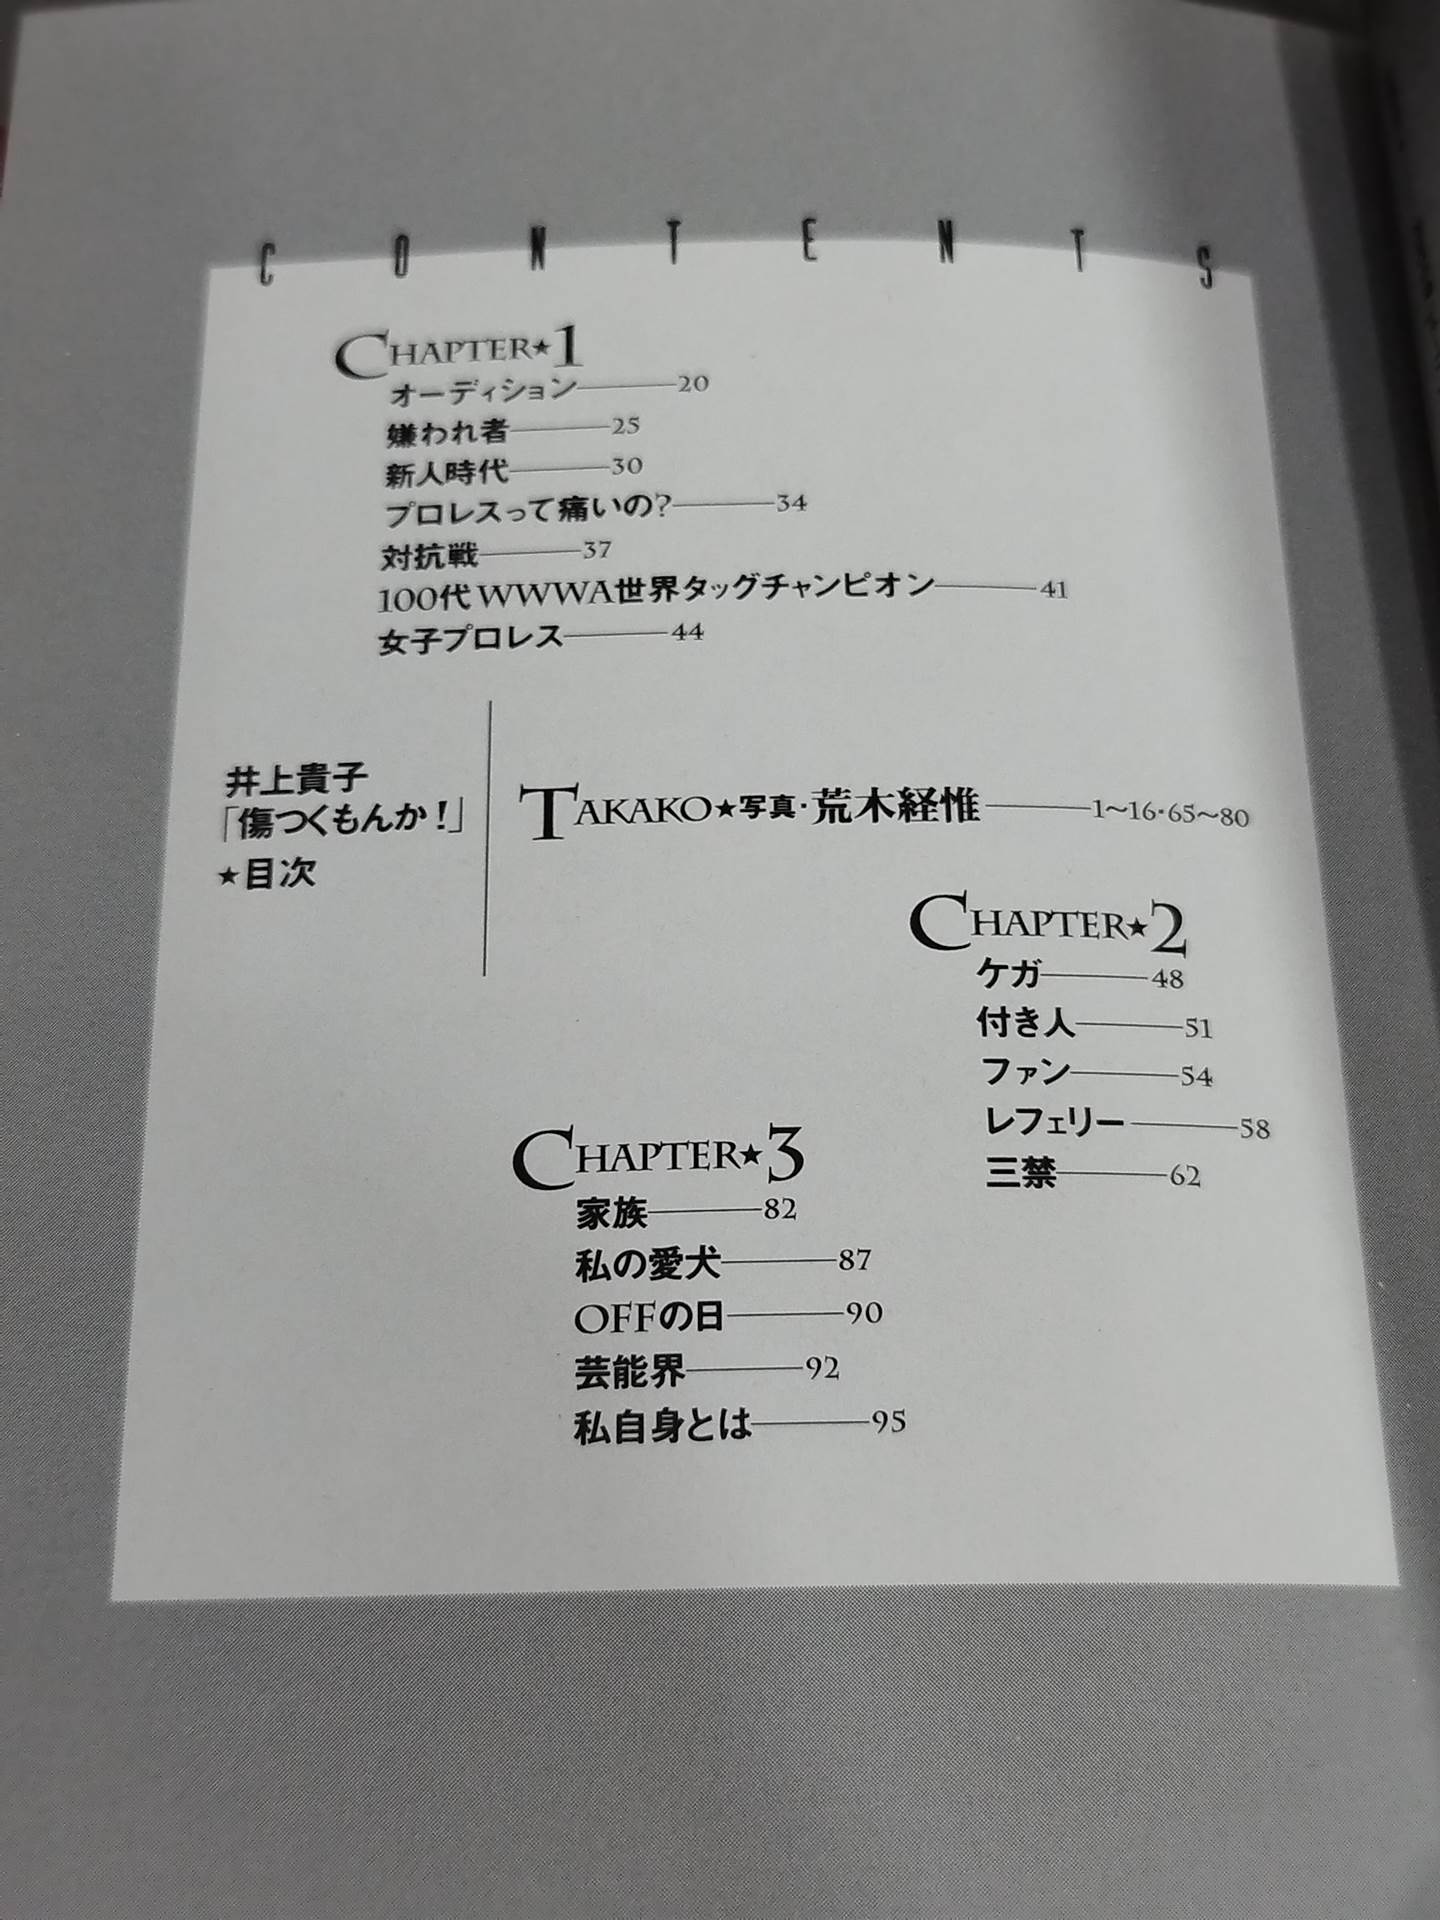 CONTENTS
CHAPTER★1
オーディション———20
嫌われ者———25
新人時代———30
プロレスって痛いの?———34
対抗戦———37
100代WWWA世界タッグチャンピオン———41
女子プロレス———44
井上貴子
「傷つくもんか!」
★目次
TAKAKO★写真・荒木経惟———1〜16・65〜80
CHAPTER★2
ケガ———48
付き人———51
ファン———54
レフェリー———58
三禁———62
CHAPTER★3
家族———82
私の愛犬———87
OFFの日———90
芸能界———92
私自身とは———95